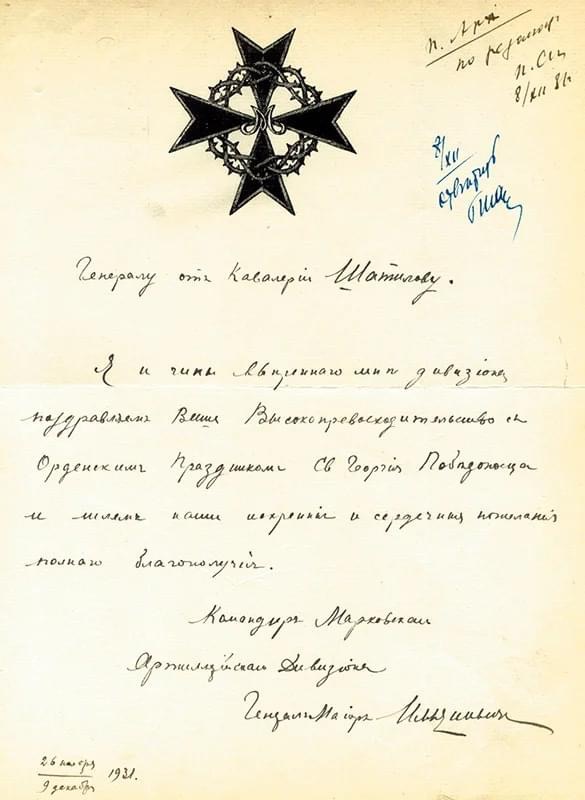 М
8/XII 31
8/XII
Генералу отъ Кавалеріи Шатилову.
Я и чины ввѣреннаго мнѣ дивизіона
поздравляемъ Ваше Высокопревосходительство съ
Орденскимъ Праздникомъ Св Георгія Побѣдоносца
и шлемъ наши искреннія и сердечныя пожеланія
полнаго благополучія.
Командиръ Марковскаго
Артиллерійскаго Дивизіона
Генералъ Маіоръ
26 ноября
9 декабря
1931.